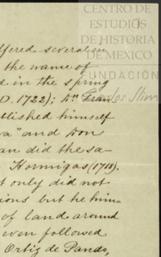 CENTRO DE
ESTUDIOS
DE HISTORIA
DE MEXICO
FUNDACIÓN
Carlos Slim
ffered several in
the name of
d in the spring
D. 1722); Dn Juan
tablished himself
va" and Don
an did the sa-
Hormigas (1713).
t only did not
ions but he him-
of land around
even followed
Ortiz de Pando,